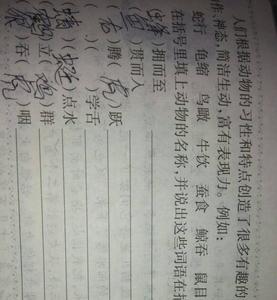 人们根据动物的习性和特点创造了很多有趣的
神态，简洁生动，富有表现力。例如：
蛇行 龟缩 鸟瞰 牛饮 蚕食 鲸吞 鼠目
在括号里填上动物的名称，并说出这些词语在
(蜂)拥而至
(鱼)贯而入
(龙)腾(虎)跃
( )( )学舌
(蜻)(蜓)点水
(鹤)立(鸡)群
(狼)吞(虎)咽